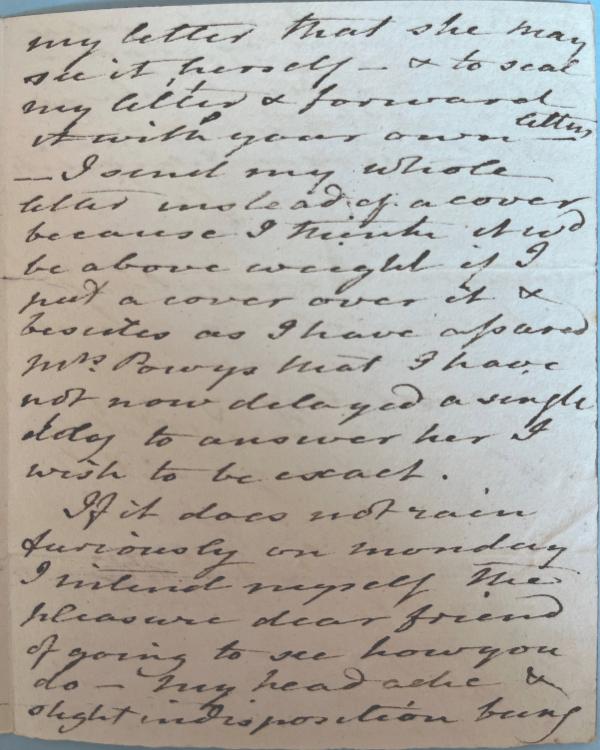 my letter that she may
see it herself – & to seal
my letter & forward
it with your own letter
– I send my whole
letter instead of a cover
because I think it wd
be above weight if I
put a cover over it &
besides as I have assured
Mrs. Powys that I have
not now delayed a single
day to answer her I
wish to be exact.
If it does not rain
furiously on monday
I intend myself the
pleasure dear friend
of going to see how you
do – My head ache &
slight indisposition being